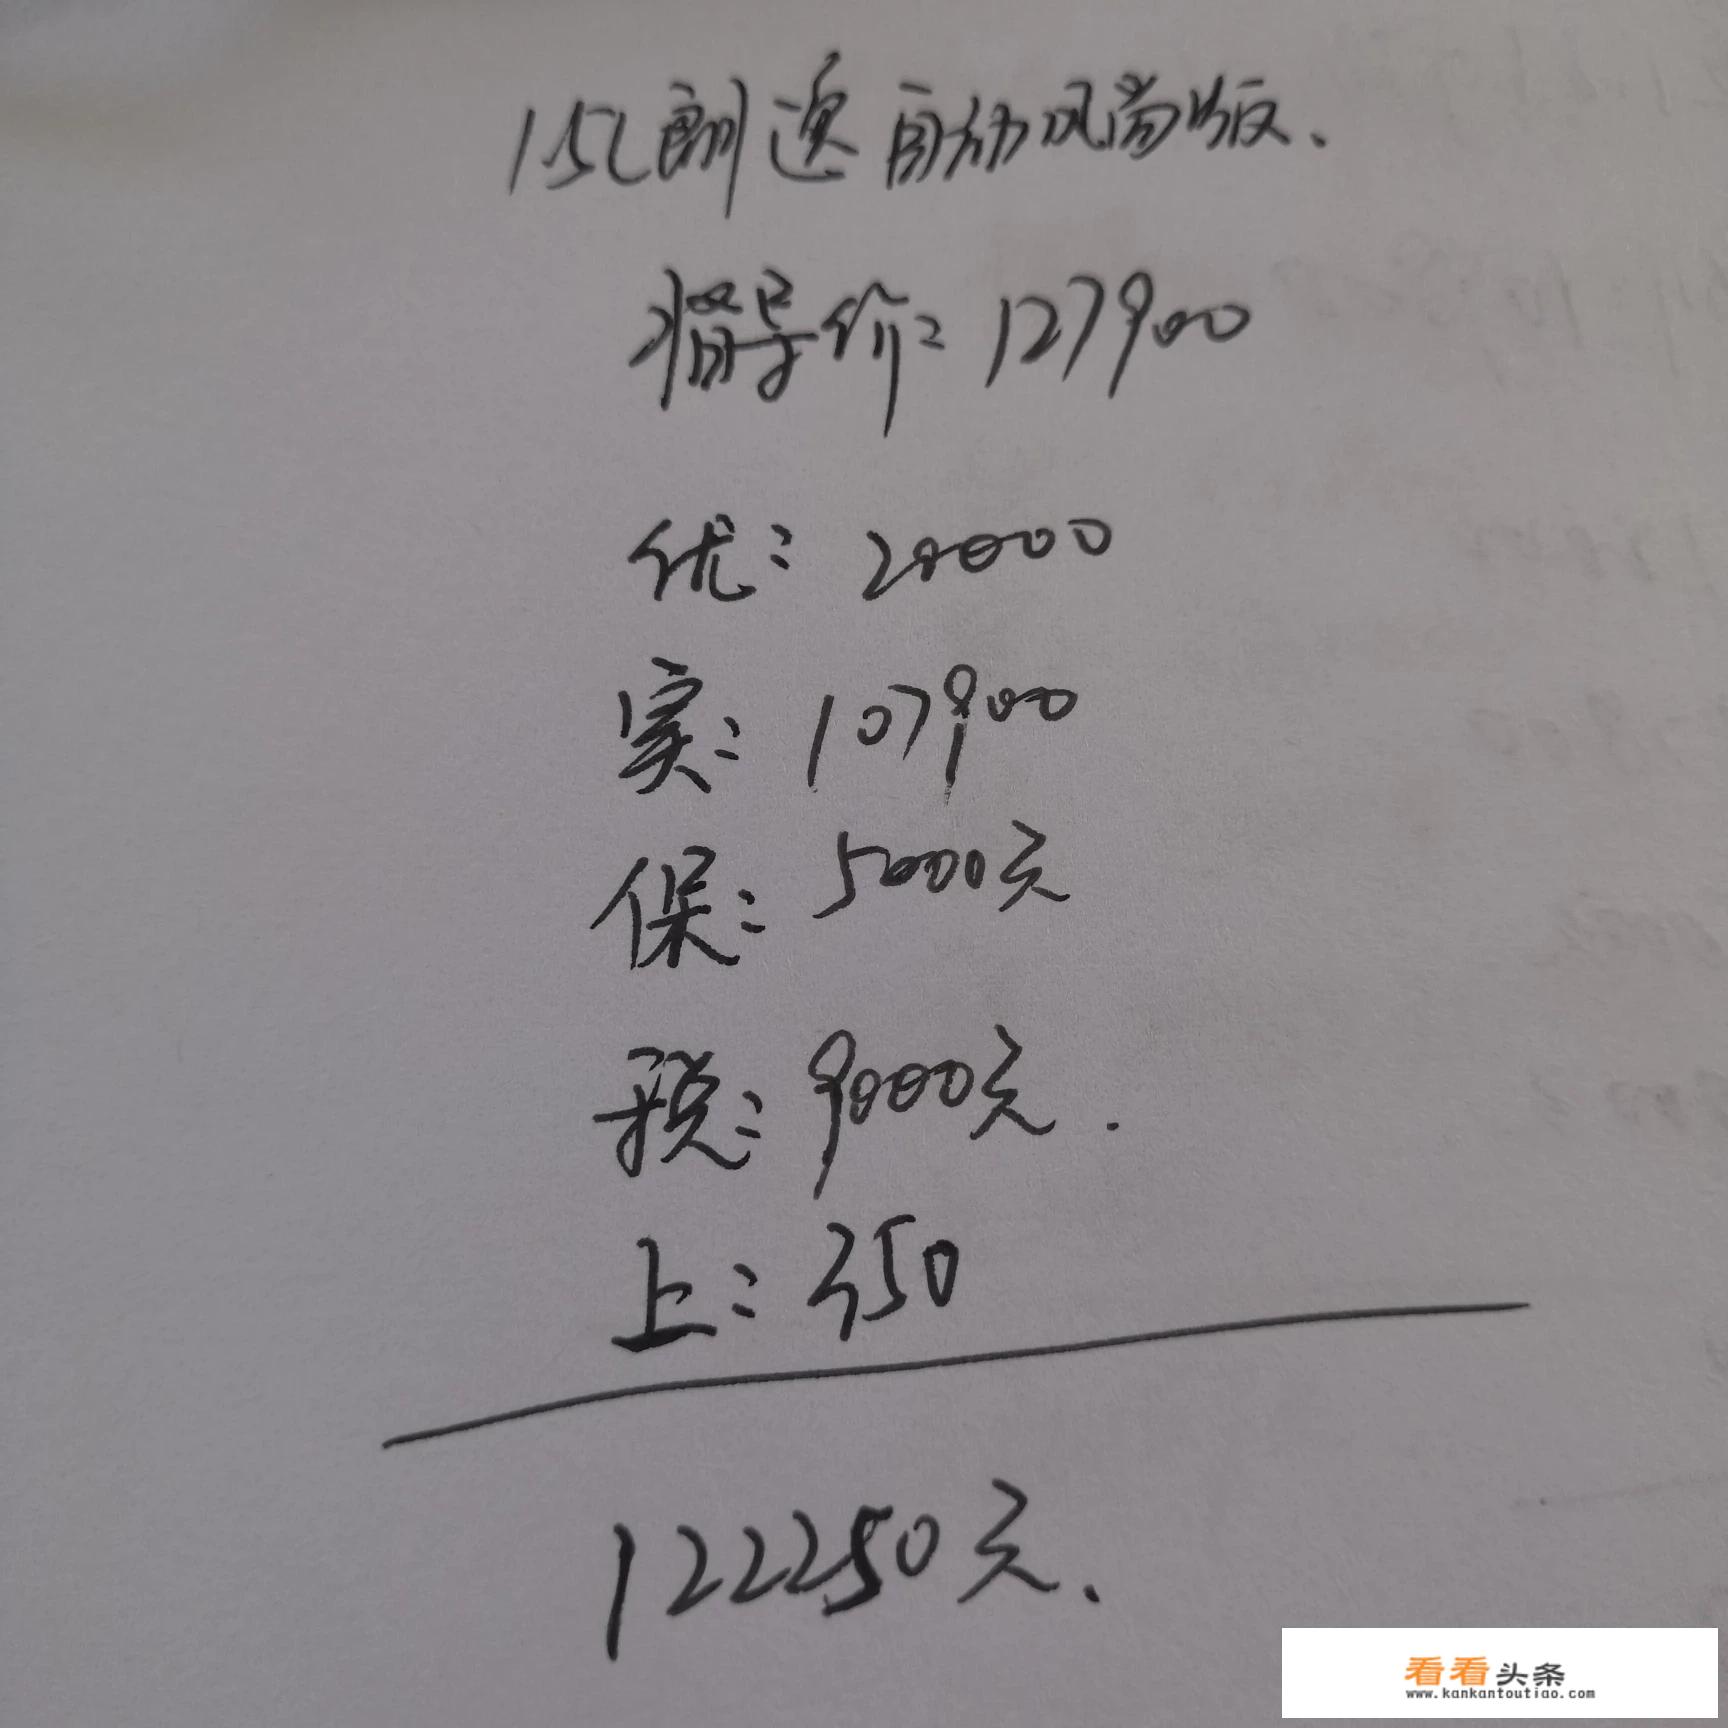 1.5L朗逸自动风尚版.
指导价:127900
优:20000
实:107900
保:5000元
税:9000元.
上:350
122250元.
看看头条
www.kankantoutiao.com